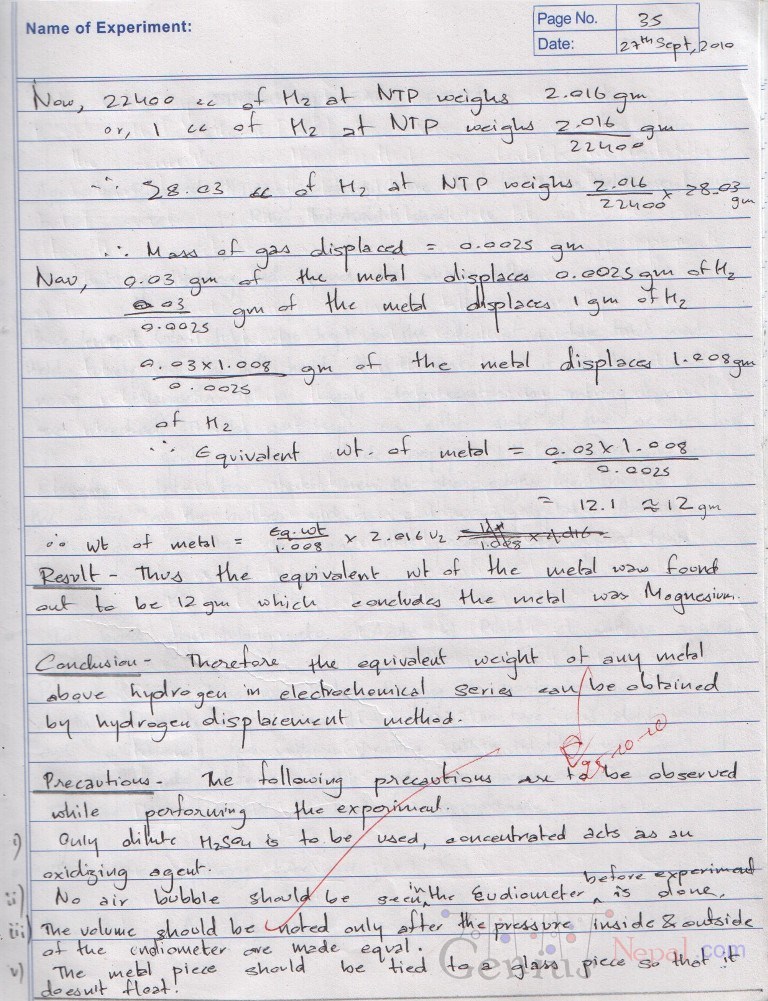 Name of Experiment:
Page No. 35
Date: 27th Sept, 2010
Now, 22400 cc of H2 at NTP weighs 2.016 gm
or, 1 cc of H2 at NTP weighs 2.016/22400 gm
∴ 28.03 cc of H2 at NTP weighs 2.016/22400 × 28.03 gm
∴ Mass of gas displaced = 0.0025 gm
Now, 0.03 gm of the metal displaces 0.0025 gm of H2
0.03/0.0025 gm of the metal displaces 1 gm of H2
0.03×1.008/0.0025 gm of the metal displaces 1.008 gm
of H2
∴ Equivalent wt. of metal = 0.03×1.008/0.0025
= 12.1 ≈ 12 gm
∴ wt of metal = Eq.wt/1.008 × 2.016
Result - Thus the equivalent wt of the metal was found
out to be 12 gm which concludes the metal was Magnesium.
Conclusion - Therefore the equivalent weight of any metal
above hydrogen in electrochemical series can be obtained
by hydrogen displacement method.
25-10-10
Precautions - The following precautions are to be observed
while performing the experiment.
i) Only dilute H2SO4 is to be used, concentrated acts as an
oxidizing agent.
ii) No air bubble should be seen in the Eudiometer before experiment is done,
iii) The volume should be noted only after the pressure inside & outside
of the endiometer are made equal.
v) The metal piece should be tied to a glass piece so that it
doesn't float.
Genius Nepal.com